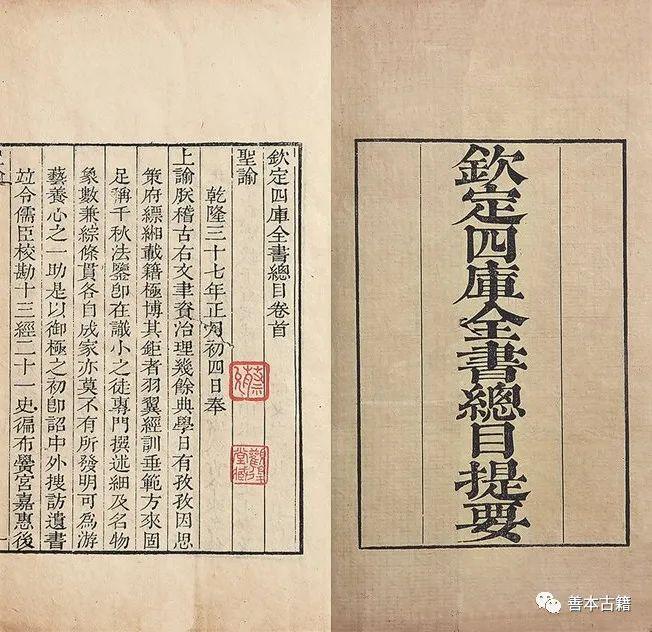 欽定四庫全書總目提要
欽定四庫全書總目卷首
聖諭
乾隆三十七年正月初四日奉
上諭朕稽古右文聿資治理幾餘典學日有孜孜因思
策府縹緗載籍極博其鉅者羽翼經訓垂範方來固
足稱千秋法鑒卽在識小之徒專門撰述細及名物
象數兼綜條貫各自成家亦莫不有所發明可爲游
藝養心之一助是以御極之初卽詔中外搜訪遺書
竝令儒臣校勘十三經二十一史徧布黌宮嘉惠後
善本古籍